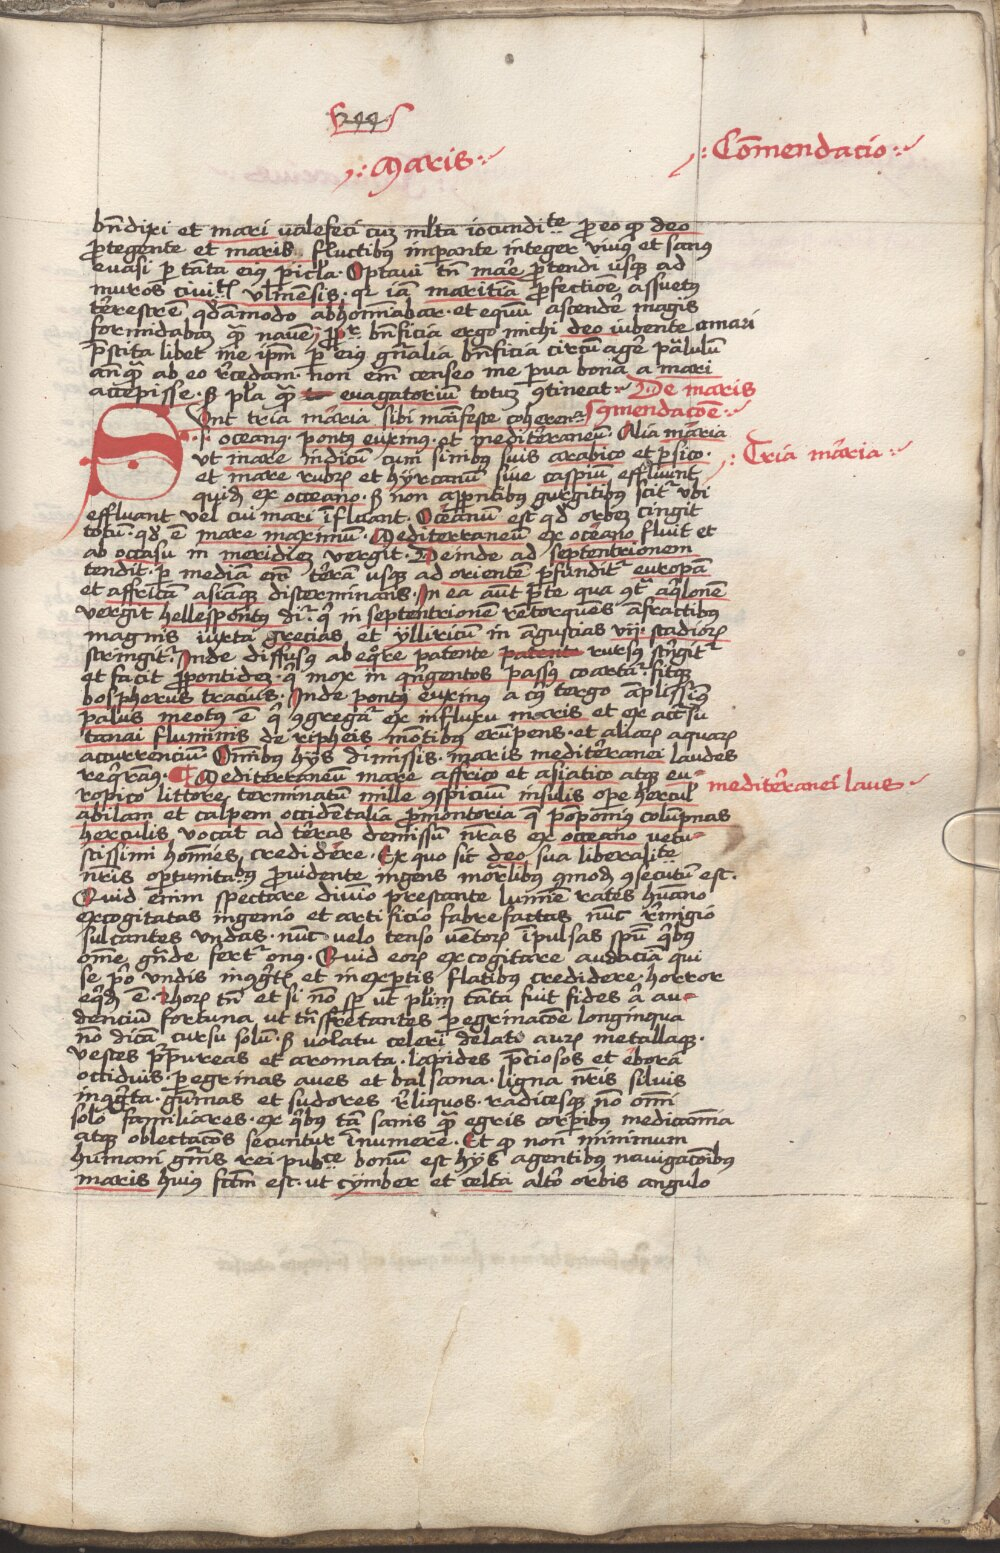 244
Maris
Cōmendacio
bn̄dixi et mari valefeci cuȝ ml̄ta iocundi^te ꝓ eo qꝫ deo
ꝓtegente et maris fluctibꝰ imꝑante integer viuꝰ et sanꝰ
euasi ꝑ tāta eiꝰ picl̄a. Optaui tn̄ mare ꝓtendi usqꝫ ad
muros ciuit̄ꝭ vlmēnsis. qꝛ iā maritīa ꝓfectioē assuetꝰ
terrestrē qd̄āmodo abhoīnabar. et equū ascendere magis
formidabaȝ qꝫ̄ nauē. ꝓꝑ bn̄ficia ergo michi deo iubente a mari
p̄stita libet me ip̄m ꝑ eiꝰ gn̄alia bn̄ficia circūagere paululū
anqꝫ̄ ab eo r̄cedam. non em̄ censeo me parua bona a mari
accepisse. sꝫ pl̄a qꝫ̄ euagatoriū totuȝ ꝯtineat. De maris
Sunt tria maria sibi manifeste coheren^cia ꝯmendacōe
.s. oceanꝰ. pontꝰ euxinꝰ. et mediterraneū. Alia maria
vt mare indicū cum sinibꝰ suis arabico et ꝑsico.
et mare rubrȝ et hÿrcanū siue caspiū effluunt
quidȝ ex occeano. sꝫ non apparentibꝰ gurgitibꝰ scit^r vbi
effluant vel cui mari īfluant. Oceanū est qd̄ orbeȝ cingit
totū. qd̄ ē mare maximū. Mediterraneū ex oceano fluit et
ab occasu in meridieȝ vergit. Deinde ad septentrionem
tendit. ꝑ mediā em̄ terrā usqꝫ ad orientē ꝑfundit^r europā
et affricā asiāqꝫ disterminans. In ea aūt ꝑte qua ꝯt^a aq̇lonē
vergit hellespontꝰ di^r. q̇ in septentrionē retorquēs āfractibꝰ
magnis iuxta grecias et ÿlliricū in angustias vij. stadiorȝ
stringit^r. Inde diffusꝰ ab eq̄re patente patente rursꝰ stringit^r
et facit ꝓpontideȝ. q̇ mox in qͥngentos passꝰ coartat^r. fitqꝫ
bospherus tracius. Inde pontꝰ euxinꝰ a cuiꝰ tergo ampliss̄ꝰ
palus meotꝰ ē q̇ ꝯgregat^r ex influxu maris et ex accessu
tanai fluminis de ripheis mōtibꝰ erūpens. et aliarȝ aquarȝ
accurrenciū. Omnibꝰ hÿs dimissis. maris mediterranei laudes
reqramꝰ. Mediterraneū mare affrico et asiatico atqꝫ eu
ropico littore terminatū mille ꝯspicuū insulis ope hercul̄
abilam et calpem occidentalia ꝓmontoria q̄ pomponiꝰ colūpnas
herculis vocat ad terras demissū nr̄as ex occeano vetu
stissimi homines credidere. Ex quo sic deo sua liberali^te
nr̄is oportunita^bꝰ ꝓuidente ingens mortalibꝰ qͥmodȝ ꝯsecutū est.
Quid enim spectare diuīo prestante lumine rates huāno
excogitatas ingenio et artificio fabrefactas nūc remigio
sulcantes vndas. nūc velo tenso vētorȝ īpulsas spū q̇bꝰ
omē grāde fert^r onꝰ. Quid eorȝ excogitare audaciā qui
se pͦ vndis incogͥtꝭ et inexꝑtis flatibꝰ credidere. horror
eqͥdȝ ē. Horȝ tn̄ et si nō sꝑ vt pl̄im̄ tāta fuit fides a^c au
denciū fortuna vt tn̄sfretantes ꝑegrinacōē longinqua
nō dicā cursu solū. sꝫ volatu celeri delati aurȝ metallaqꝫ.
vestes pͥpureas et aromata. lapides p̄ciosos et ebora
occiduis. ꝑegrinas aues et balsama. ligna nr̄is siluis
incogͥta. gūmas et sudores reliquos. radicesqꝫ nō omī
solo familiares. ex q̇bꝰ tā sanis qꝫ̄ egris corꝑibꝰ medicamīa
atqꝫ oblectacōēs secuntur īnumere. Et qꝫ non minimum
humani gn̄is rei pub^ce bonū est hÿs agentibꝰ nauigacōibꝰ
maris huiꝰ fctm̄ est. vt cÿmber et celta altͦ orbis angulo
Tria maria
mediterranei laus